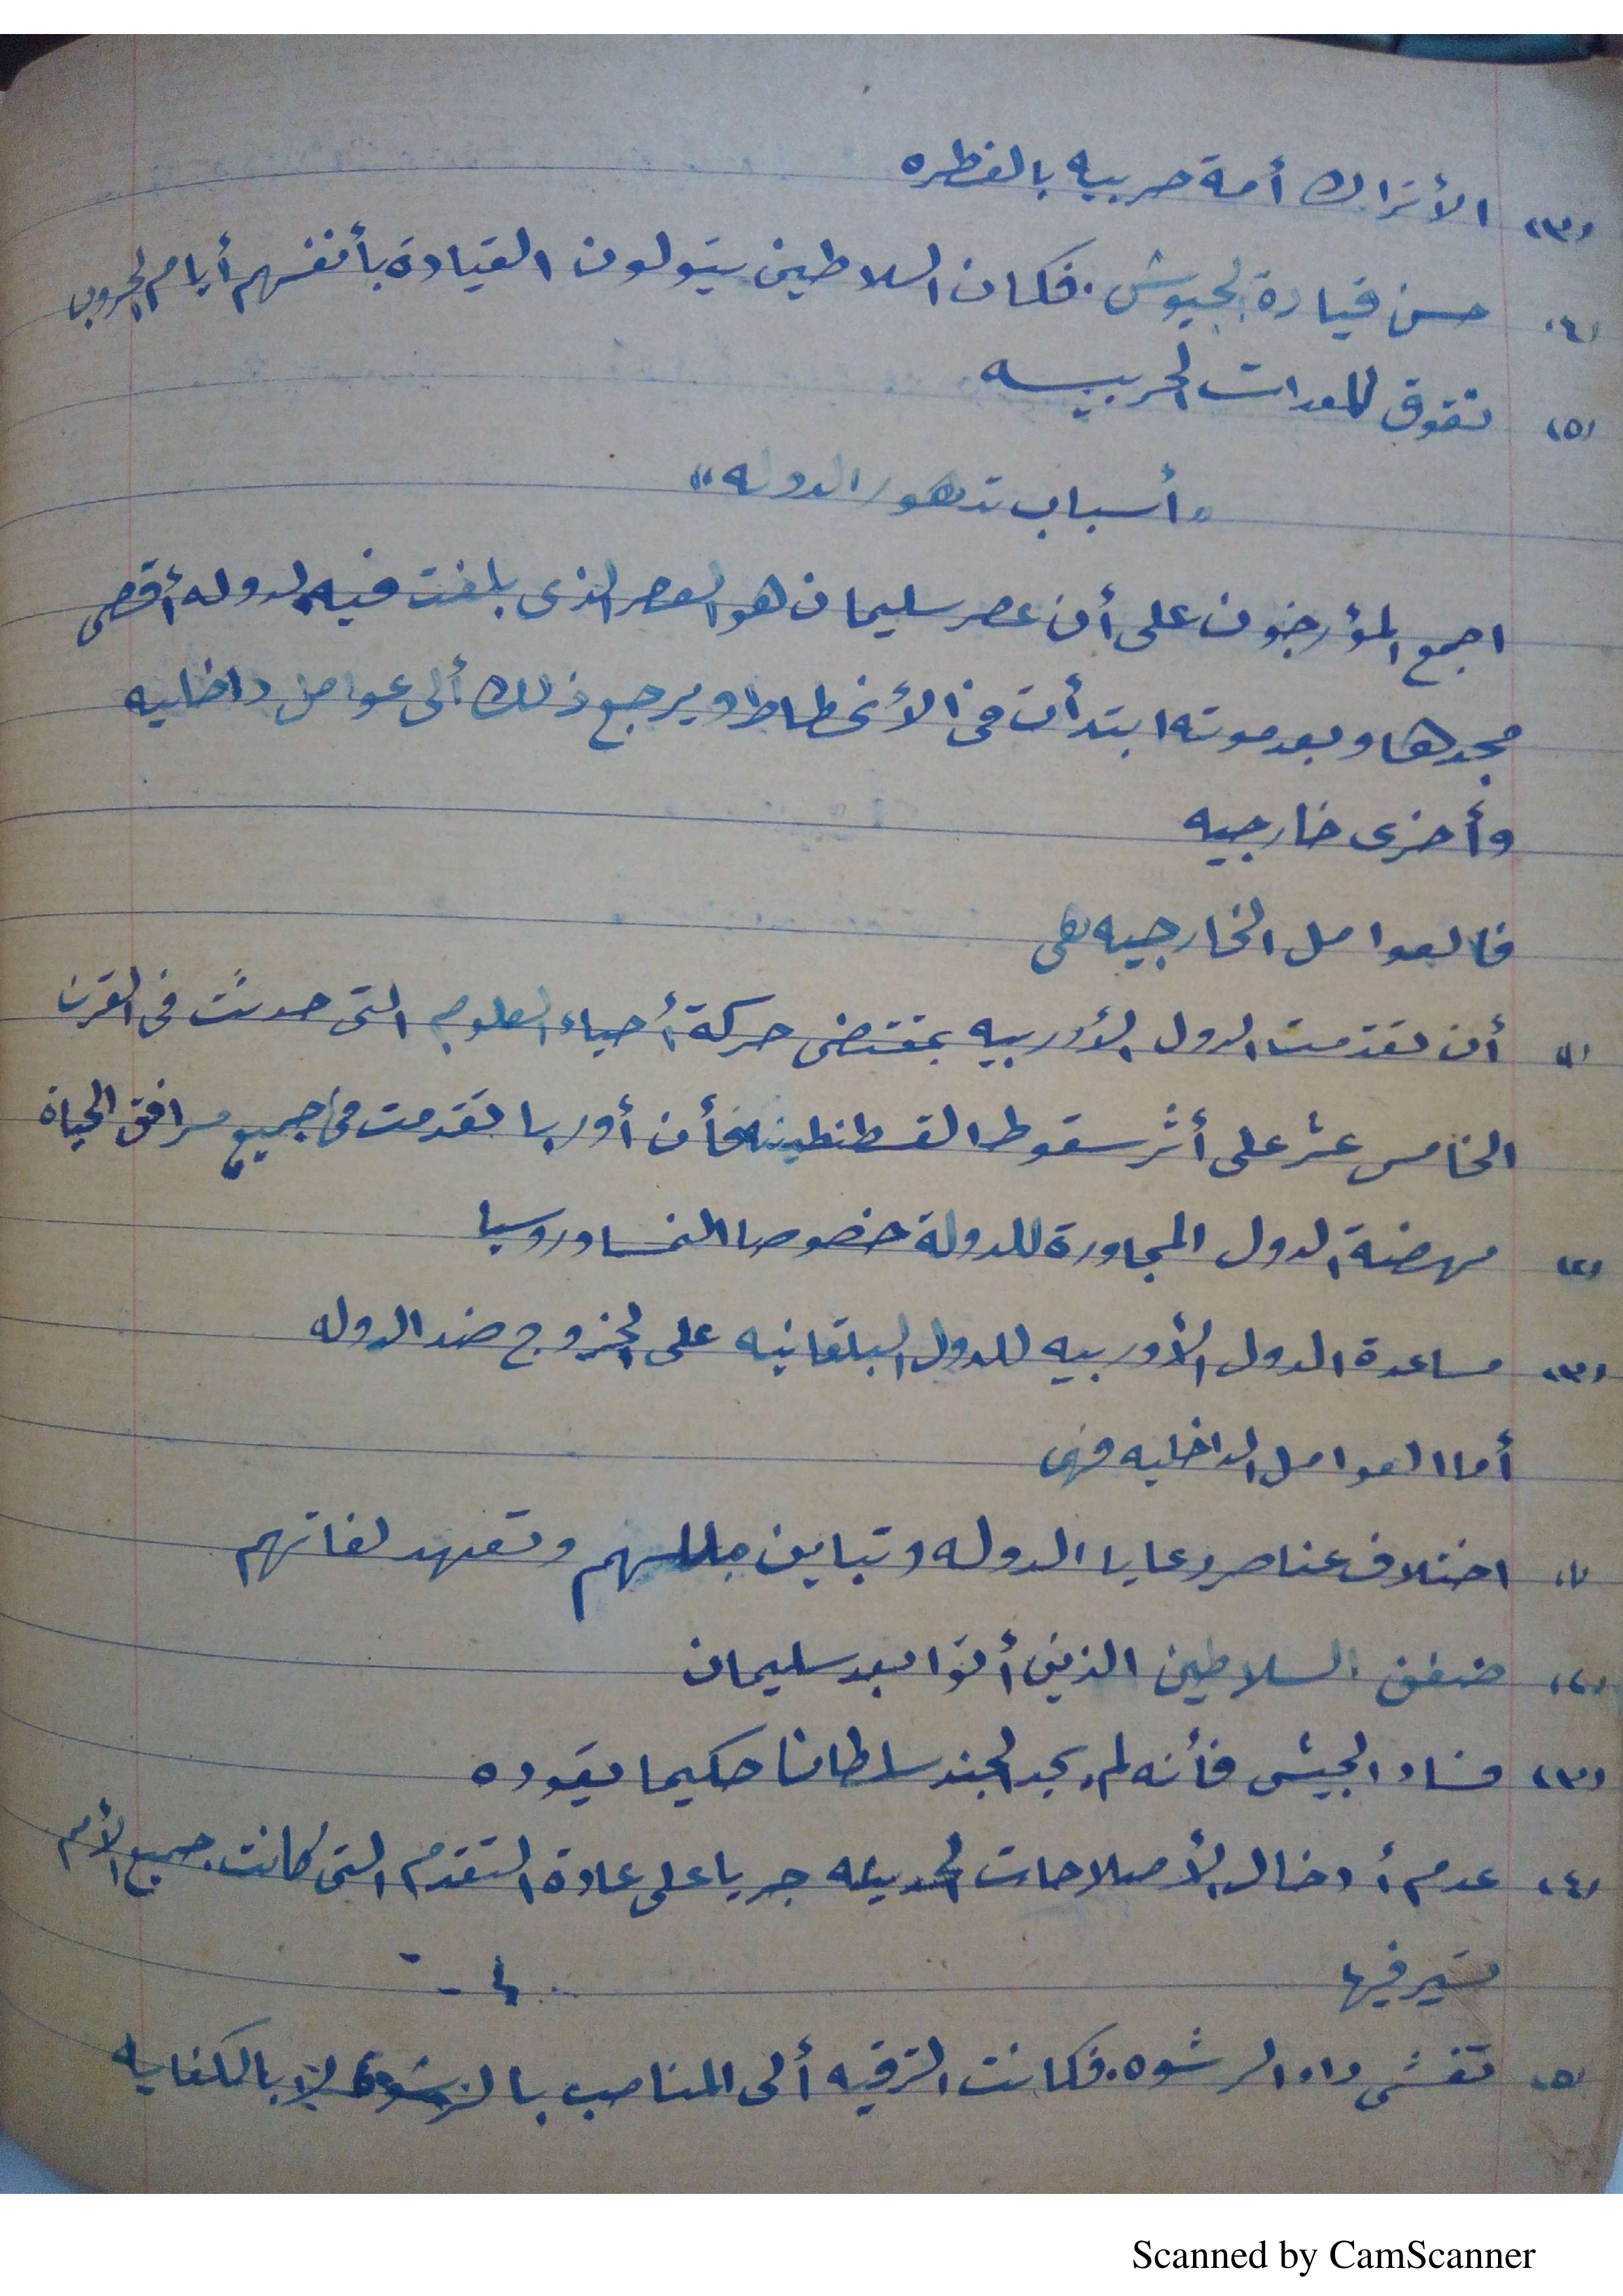 (٣) الأتراك أمة حربيه بالفطره
(٤) حسن قيادة الجيوش. فكان السلاطين يتولون القيادة بأنفسهم أيام الحروب
(٥) تفوق المعدات الحربيه
"أسباب تدهور الدوله"
اجمع المؤرخون على أن عصر سليمان هو العصر الذى بلغت فيه الدوله أقصى
مجدها وبعد موته ابتدأت فى الأنحطاط ويرجع ذلك ألى عوامل داخليه
وأخرى خارجيه
فالعوامل الخارجيه هى
(١) أن تقدمت الدول الأوربيه بمقتضى حركة أحياء العلوم التى حدثت فى القرن
الخامس عشر على أثر سقوط القسطنطينيه فأن أوربا تقدمت فى جميع مرافق الحياة
(٢) نهضة الدول المجاورة للدولة خصوصا النمسا وروسيا
(٣) مساعدة الدول الأوربيه للدول البلقانيه على الخروج ضد الدوله
أما العوامل الداخليه فهى
(١) اختلاف عناصر رعايا الدوله وتباين مللهم وتعدد لغاتهم
(٢) ضعف السلاطين الذين أتوا بعد سليمان
(٣) فساد الجيش فأنه لم يجد الجند سلطانا حكيما يقوده
(٤) عدم أدخال الأصلاحات الحديثه جريا على عادة التقدم التى كانت جميع الأمم
تسير فيها
(٥) تفشى داء الرشوه. فكانت الترقيه ألى المناصب بالرشوة لا بالكفايه
Scanned by CamScanner